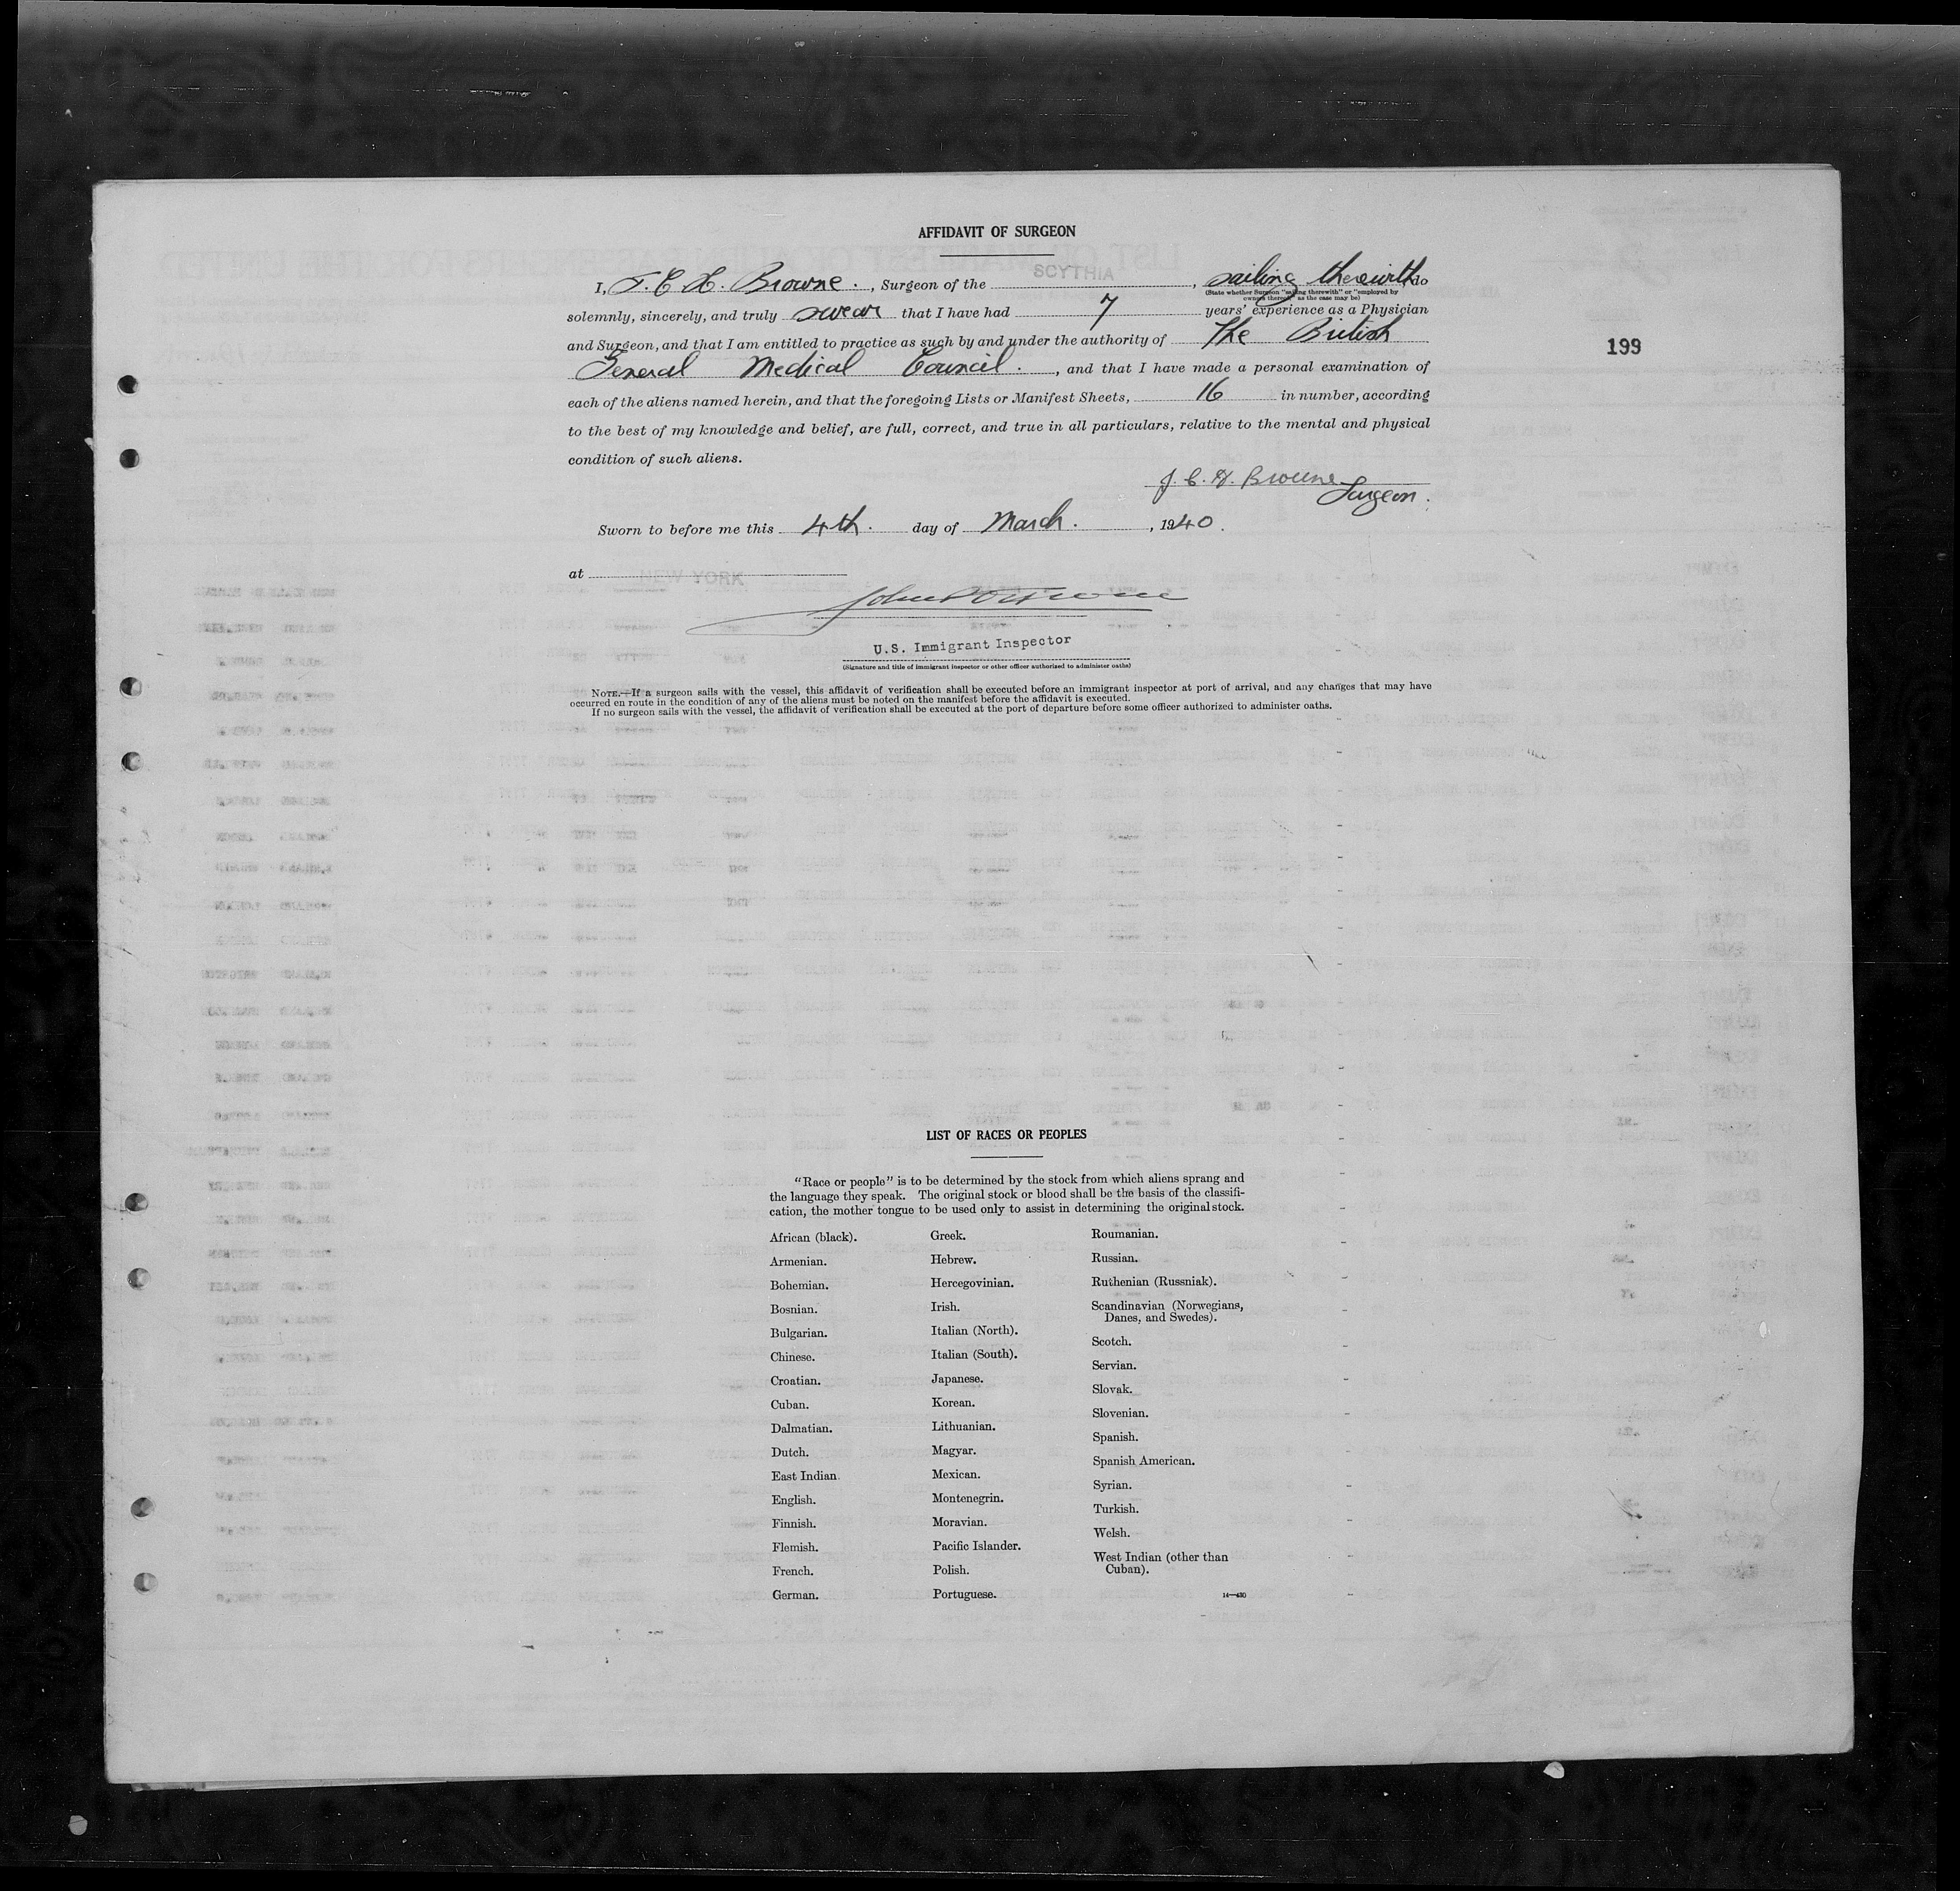 AFFIDAVIT OF SURGEON
I, J. C. H. Browne. , Surgeon of the SCYTHIA , sailing therewith, do
(State whether Surgeon "sailing therewith" or "employed by
owners thereof," as the case may be)
solemnly, sincerely, and truly swear that I have had 7 years' experience as a Physician
and Surgeon, and that I am entitled to practice as such by and under the authority of The British
General Medical Council. , and that I have made a personal examination of
each of the aliens named herein, and that the foregoing Lists or Manifest Sheets, 16 in number, according
to the best of my knowledge and belief, are full, correct, and true in all particulars, relative to the mental and physical
condition of such aliens.
199
J. C. H. Browne
Surgeon.
Sworn to before me this 4th. day of March. , 1940.
at NEW YORK
U.S. Immigrant Inspector
(Signature and title of immigrant inspector or other officer authorized to administer oaths)
NOTE.—If a surgeon sails with the vessel, this affidavit of verification shall be executed before an immigrant inspector at port of arrival, and any changes that may have
occurred en route in the condition of any of the aliens must be noted on the manifest before the affidavit is executed.
If no surgeon sails with the vessel, the affidavit of verification shall be executed at the port of departure before some officer authorized to administer oaths.
LIST OF RACES OR PEOPLES
"Race or people" is to be determined by the stock from which aliens sprang and
the language they speak. The original stock or blood shall be the basis of the classifi-
cation, the mother tongue to be used only to assist in determining the original stock.
African (black).
Armenian.
Bohemian.
Bosnian.
Bulgarian.
Chinese.
Croatian.
Cuban.
Dalmatian.
Dutch.
East Indian.
English.
Finnish.
Flemish.
French.
German.
Greek.
Hebrew.
Hercegovinian.
Irish.
Italian (North).
Italian (South).
Japanese.
Korean.
Lithuanian.
Magyar.
Mexican.
Montenegrin.
Moravian.
Pacific Islander.
Polish.
Portuguese.
Roumanian.
Russian.
Ruthenian (Russniak).
Scandinavian (Norwegians,
Danes, and Swedes).
Scotch.
Servian.
Slovak.
Slovenian.
Spanish.
Spanish American.
Syrian.
Turkish.
Welsh.
West Indian (other than
Cuban).
14—430